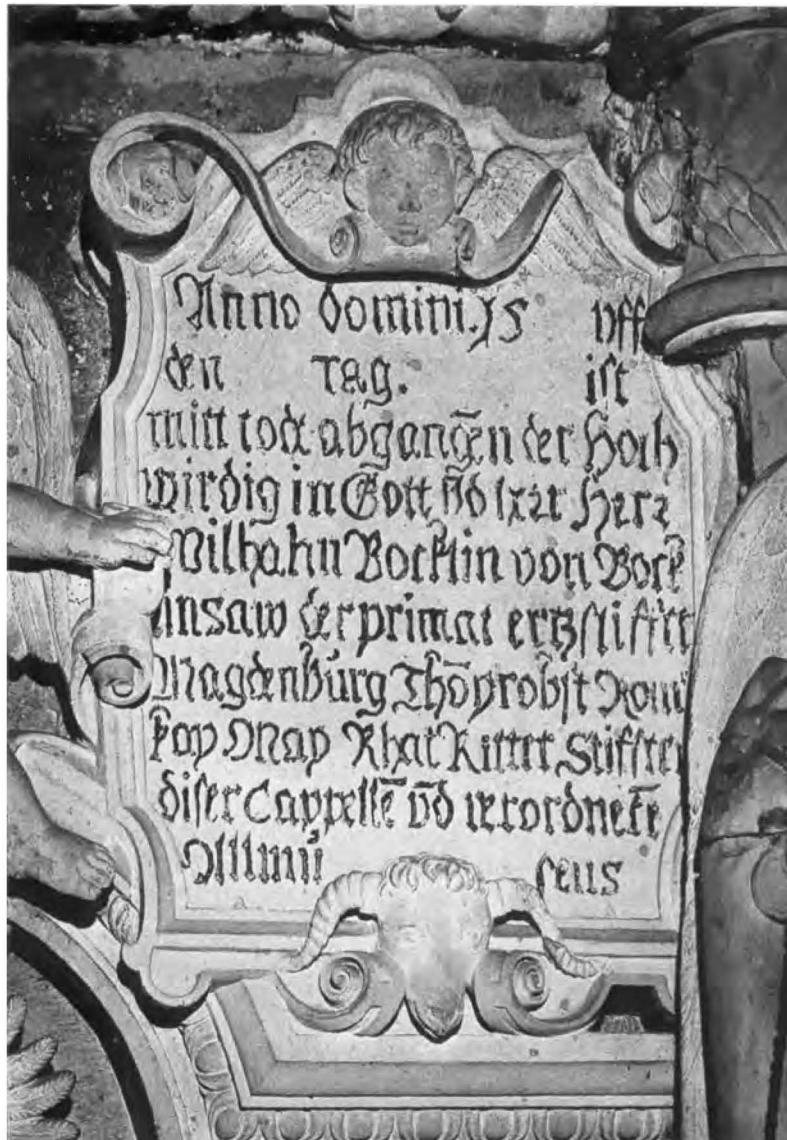 Anno domini. 15 vff
den Tag. ist
mitt tode abgangē̃n der Hoch
wirdig in Gott vñd Herr
Wilhalm Bocklin von Bock
linsaw der primat ertzstifftt
Magdenbůrg Thōprobst Rom
kay May Rhat Ritter Stiffter
diser Cappellē vñd
Allmů sens